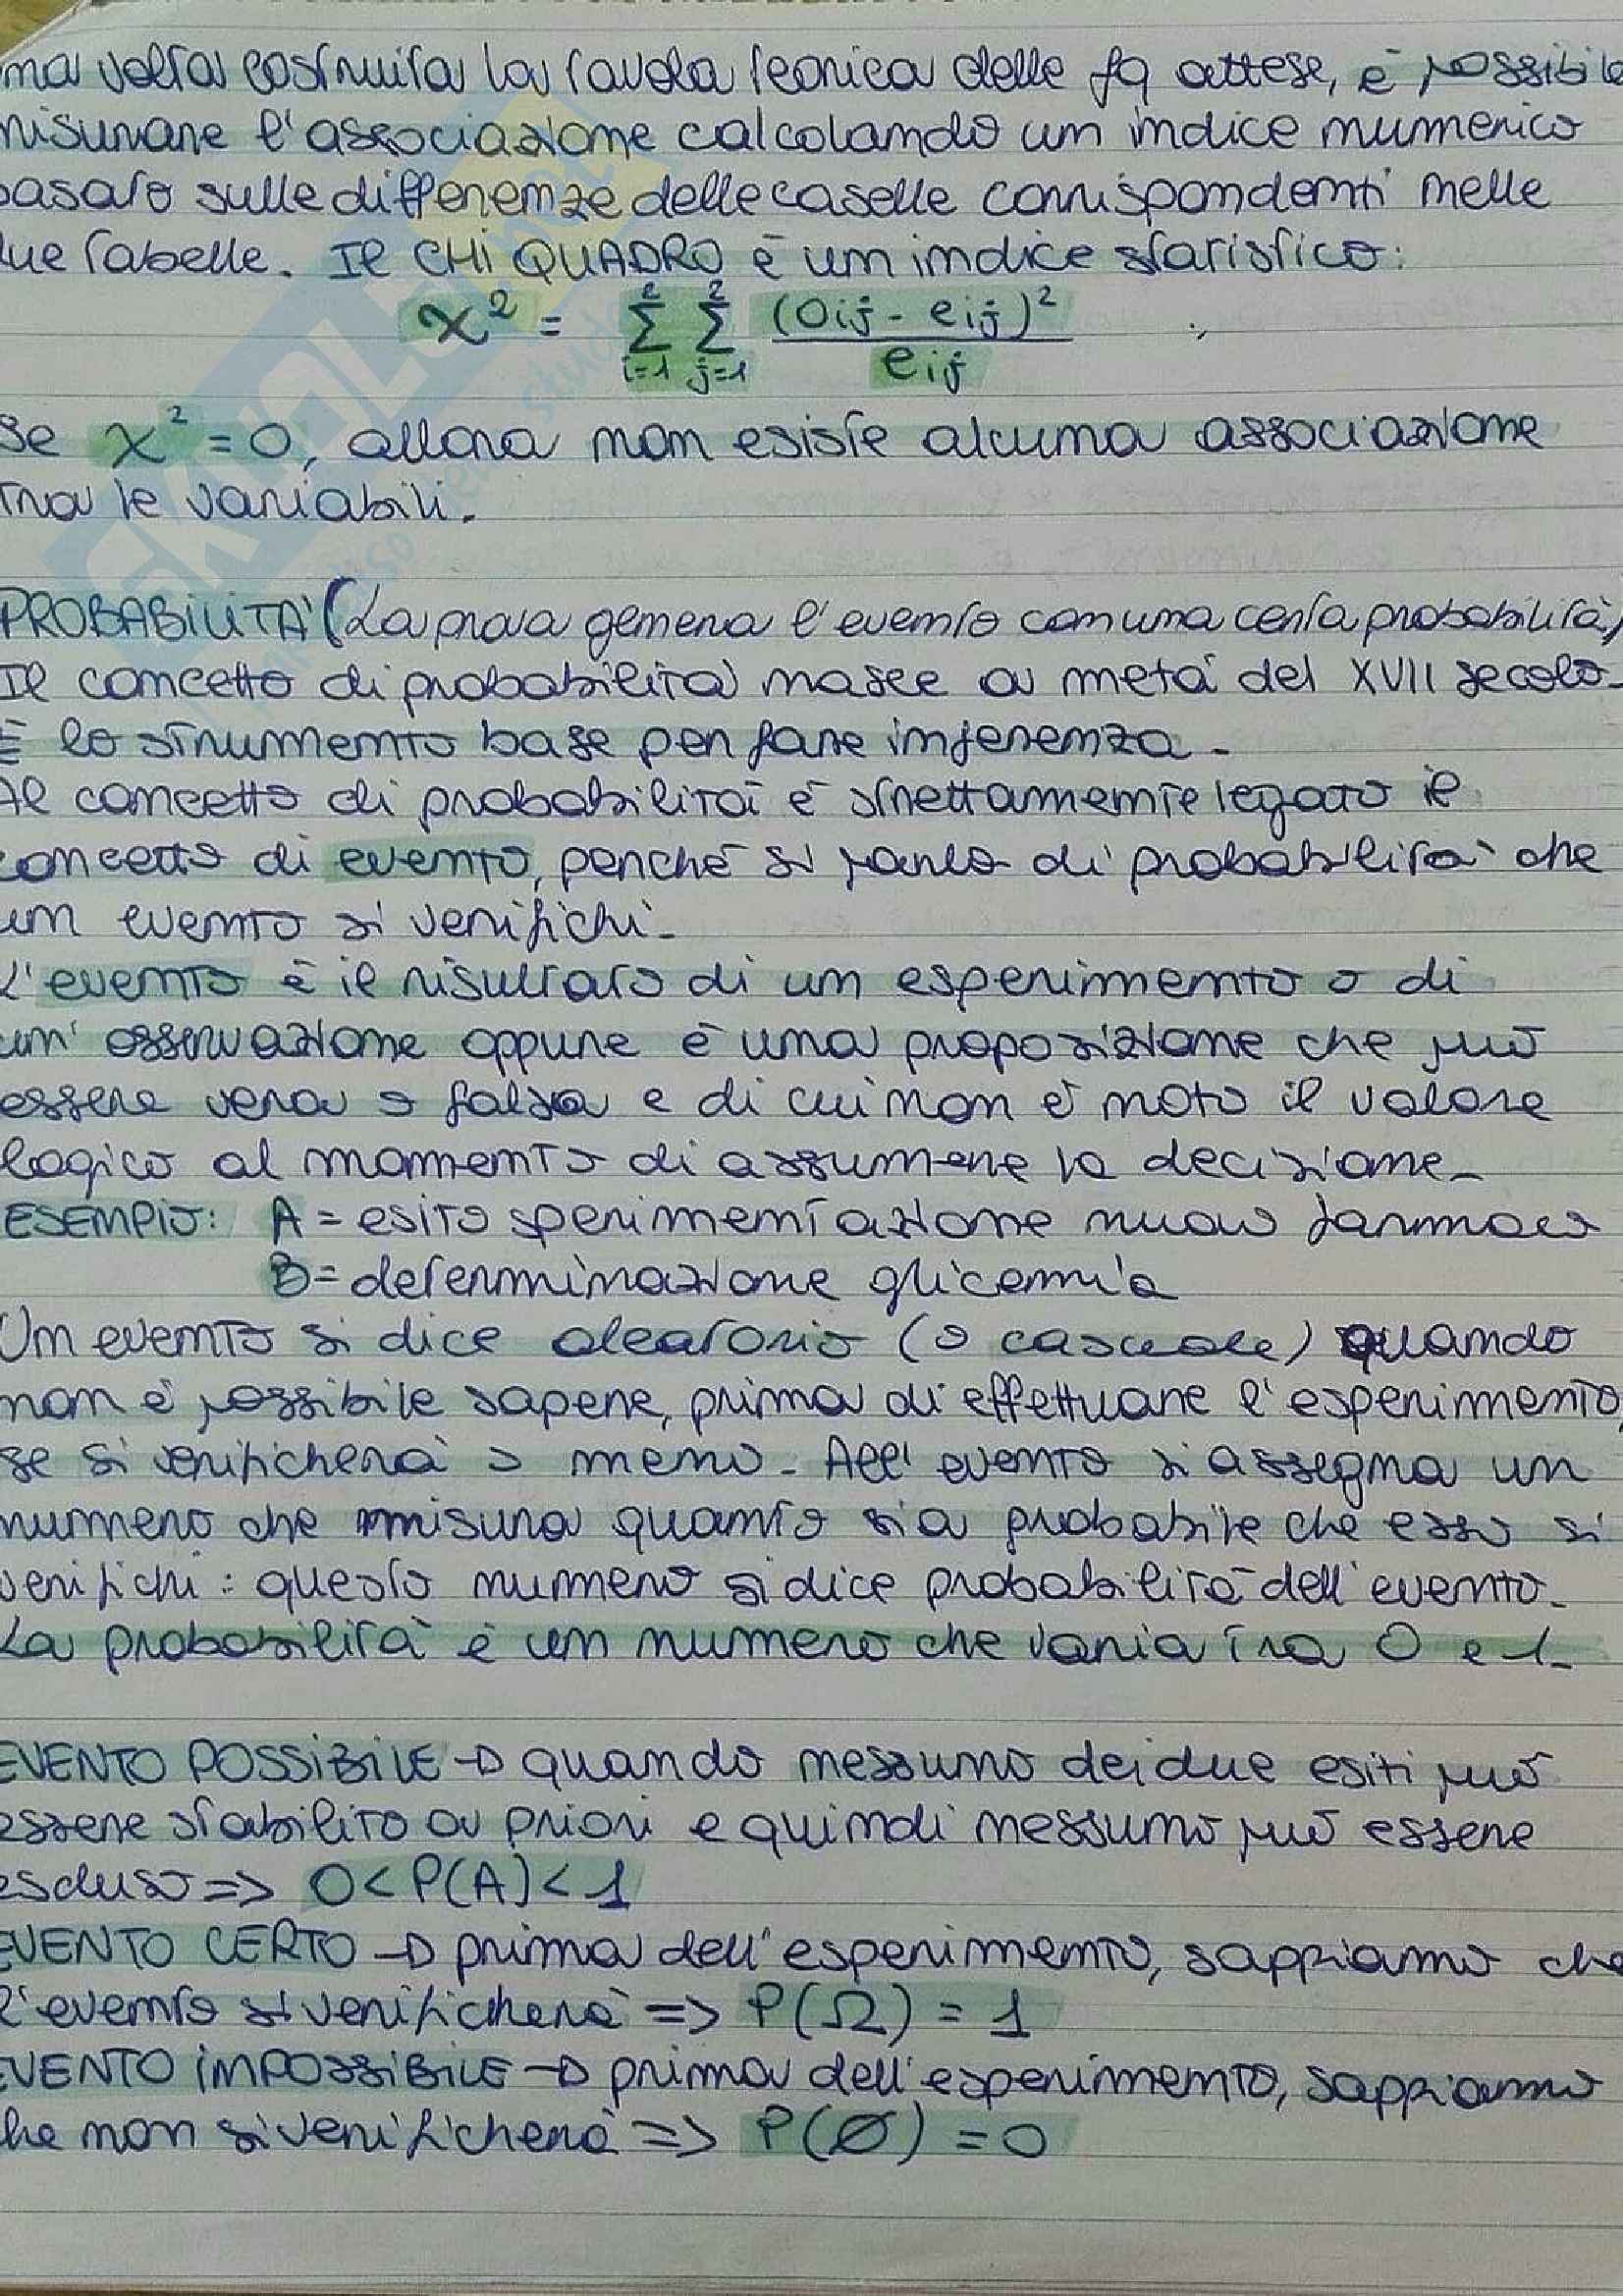 ma volta costruita la tavola teorica delle fq attese, è possibile
misurare l'associazione calcolando un indice numerico
basato sulle differenze delle caselle corrispondenti nelle
due tabelle. Il CHI QUADRO è un indice statistico:
χ² = Σ i=1 2 Σ j=1 2 (Oij - eij)² / eij
Se χ² = 0, allora non esiste alcuna associazione
tra le variabili.
PROBABILITÀ (La prova genera l'evento con una certa probabilità)
Il concetto di probabilità nasce a metà del XVII secolo.
È lo strumento base per fare inferenza.
Al concetto di probabilità è strettamente legato il
concetto di evento, perché si parla di probabilità che
un evento si verifichi.
L'evento è il risultato di un esperimento o di
un'osservazione oppure è una proposizione che può
essere vera o falsa e di cui non è noto il valore
logico al momento di assumere la decisione.
ESEMPIO: A = esito sperimentazione nuovo farmaco
B = determinazione glicemia
Un evento si dice aleatorio (o casuale) quando
non è possibile sapere, prima di effettuare l'esperimento,
se si verificherà o meno. All'evento si assegna un
numero che misura quanto sia probabile che esso si
verifichi: questo numero si dice probabilità dell'evento.
La probabilità è un numero che varia tra 0 e 1.
EVENTO POSSIBILE → quando nessuno dei due esiti può
essere stabilito a priori e quindi nessuno può essere
escluso => 0 < P(A) < 1
EVENTO CERTO → prima dell'esperimento, sappiamo che
l'evento si verificherà => P(Ω) = 1
EVENTO IMPOSSIBILE → prima dell'esperimento, sappiamo
che non si verificherà => P(∅) = 0